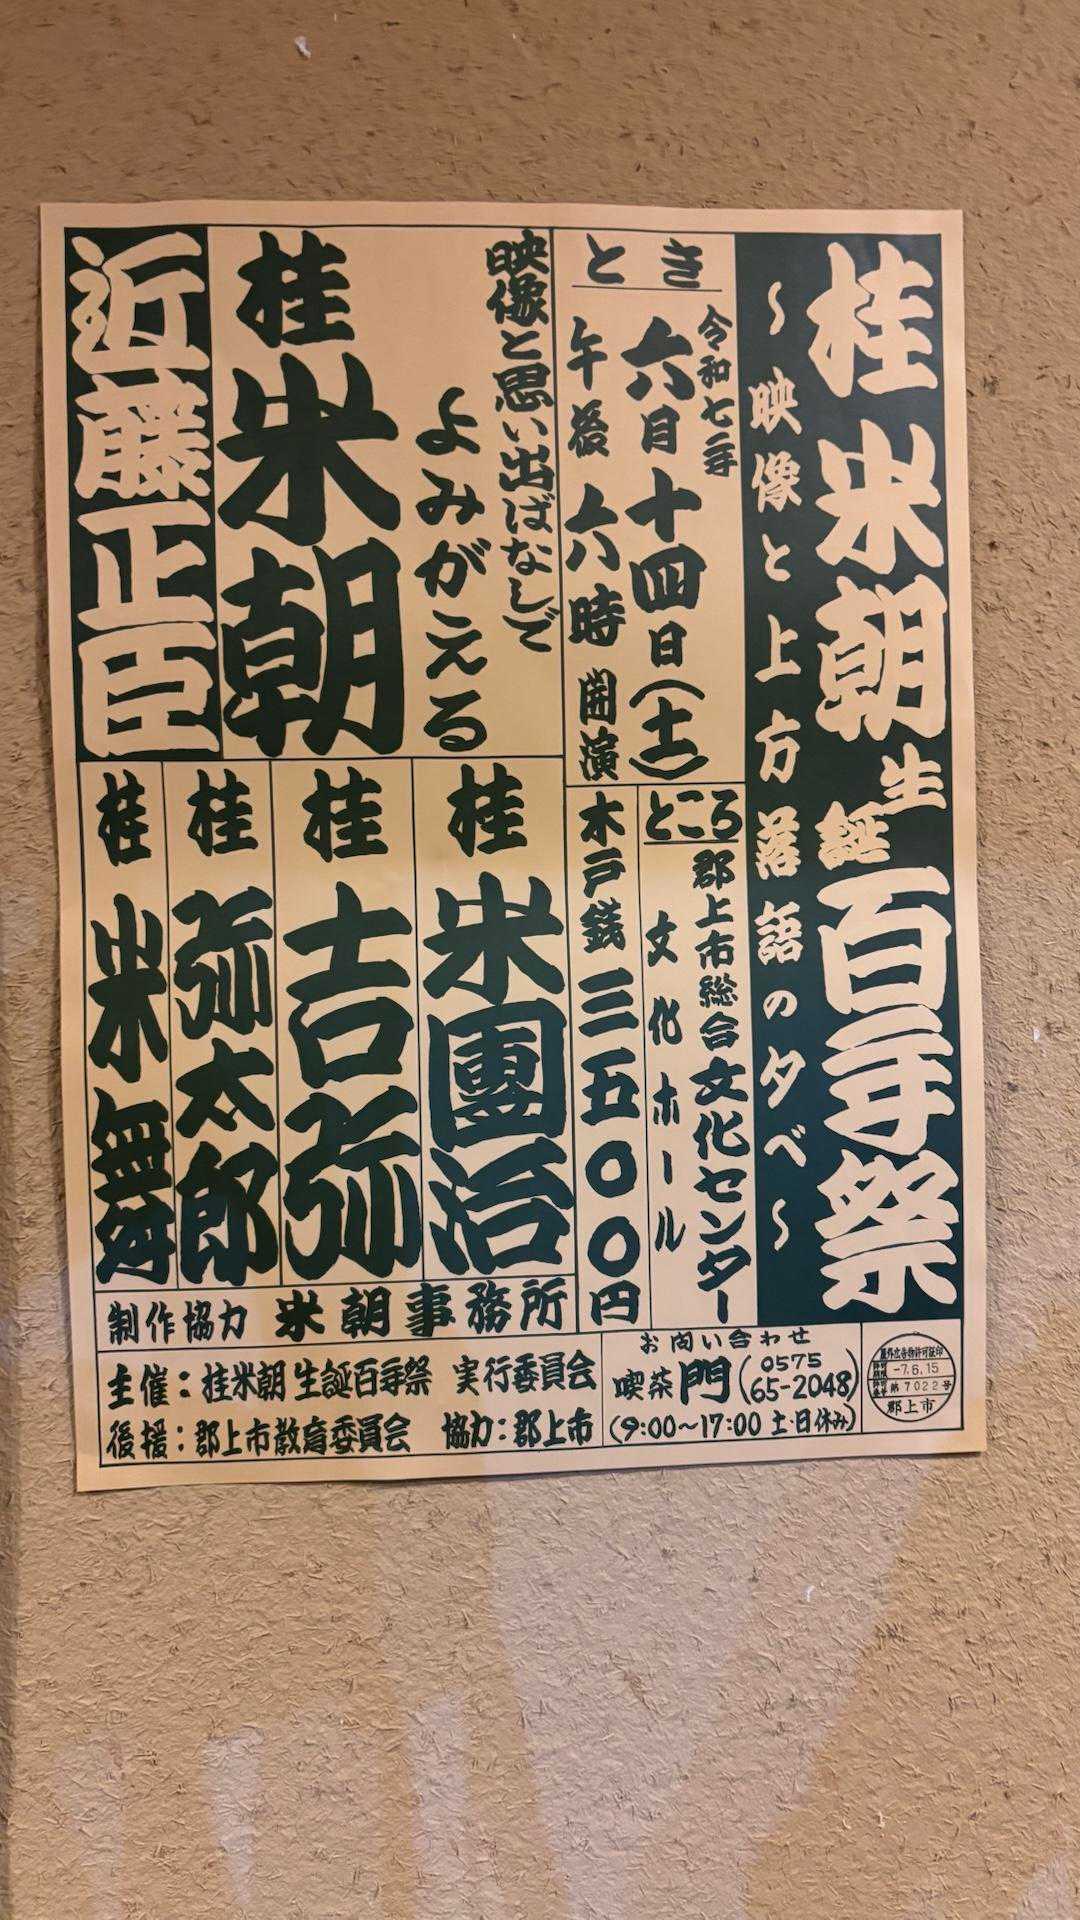 桂米朝生誕百年祭
〜映像と上方落語の夕べ〜
とき
令和七年
六月十四日(土)
午後六時開演
ところ
郡上市総合文化センター
文化ホール
木戸銭三五〇〇円
映像と思い出ばなしで
よみがえる
桂米朝
近藤正臣
桂米團治
桂吉弥
桂弥太郎
桂米舞
制作協力 米朝事務所
主催:桂米朝生誕百年祭 実行委員会
後援:郡上市教育委員会 協力:郡上市
お問い合わせ
喫茶門(0575
65-2048)
(9:00〜17:00 土・日休み)
屋外広告物許可証印
-7.6.15
第7022号
郡上市